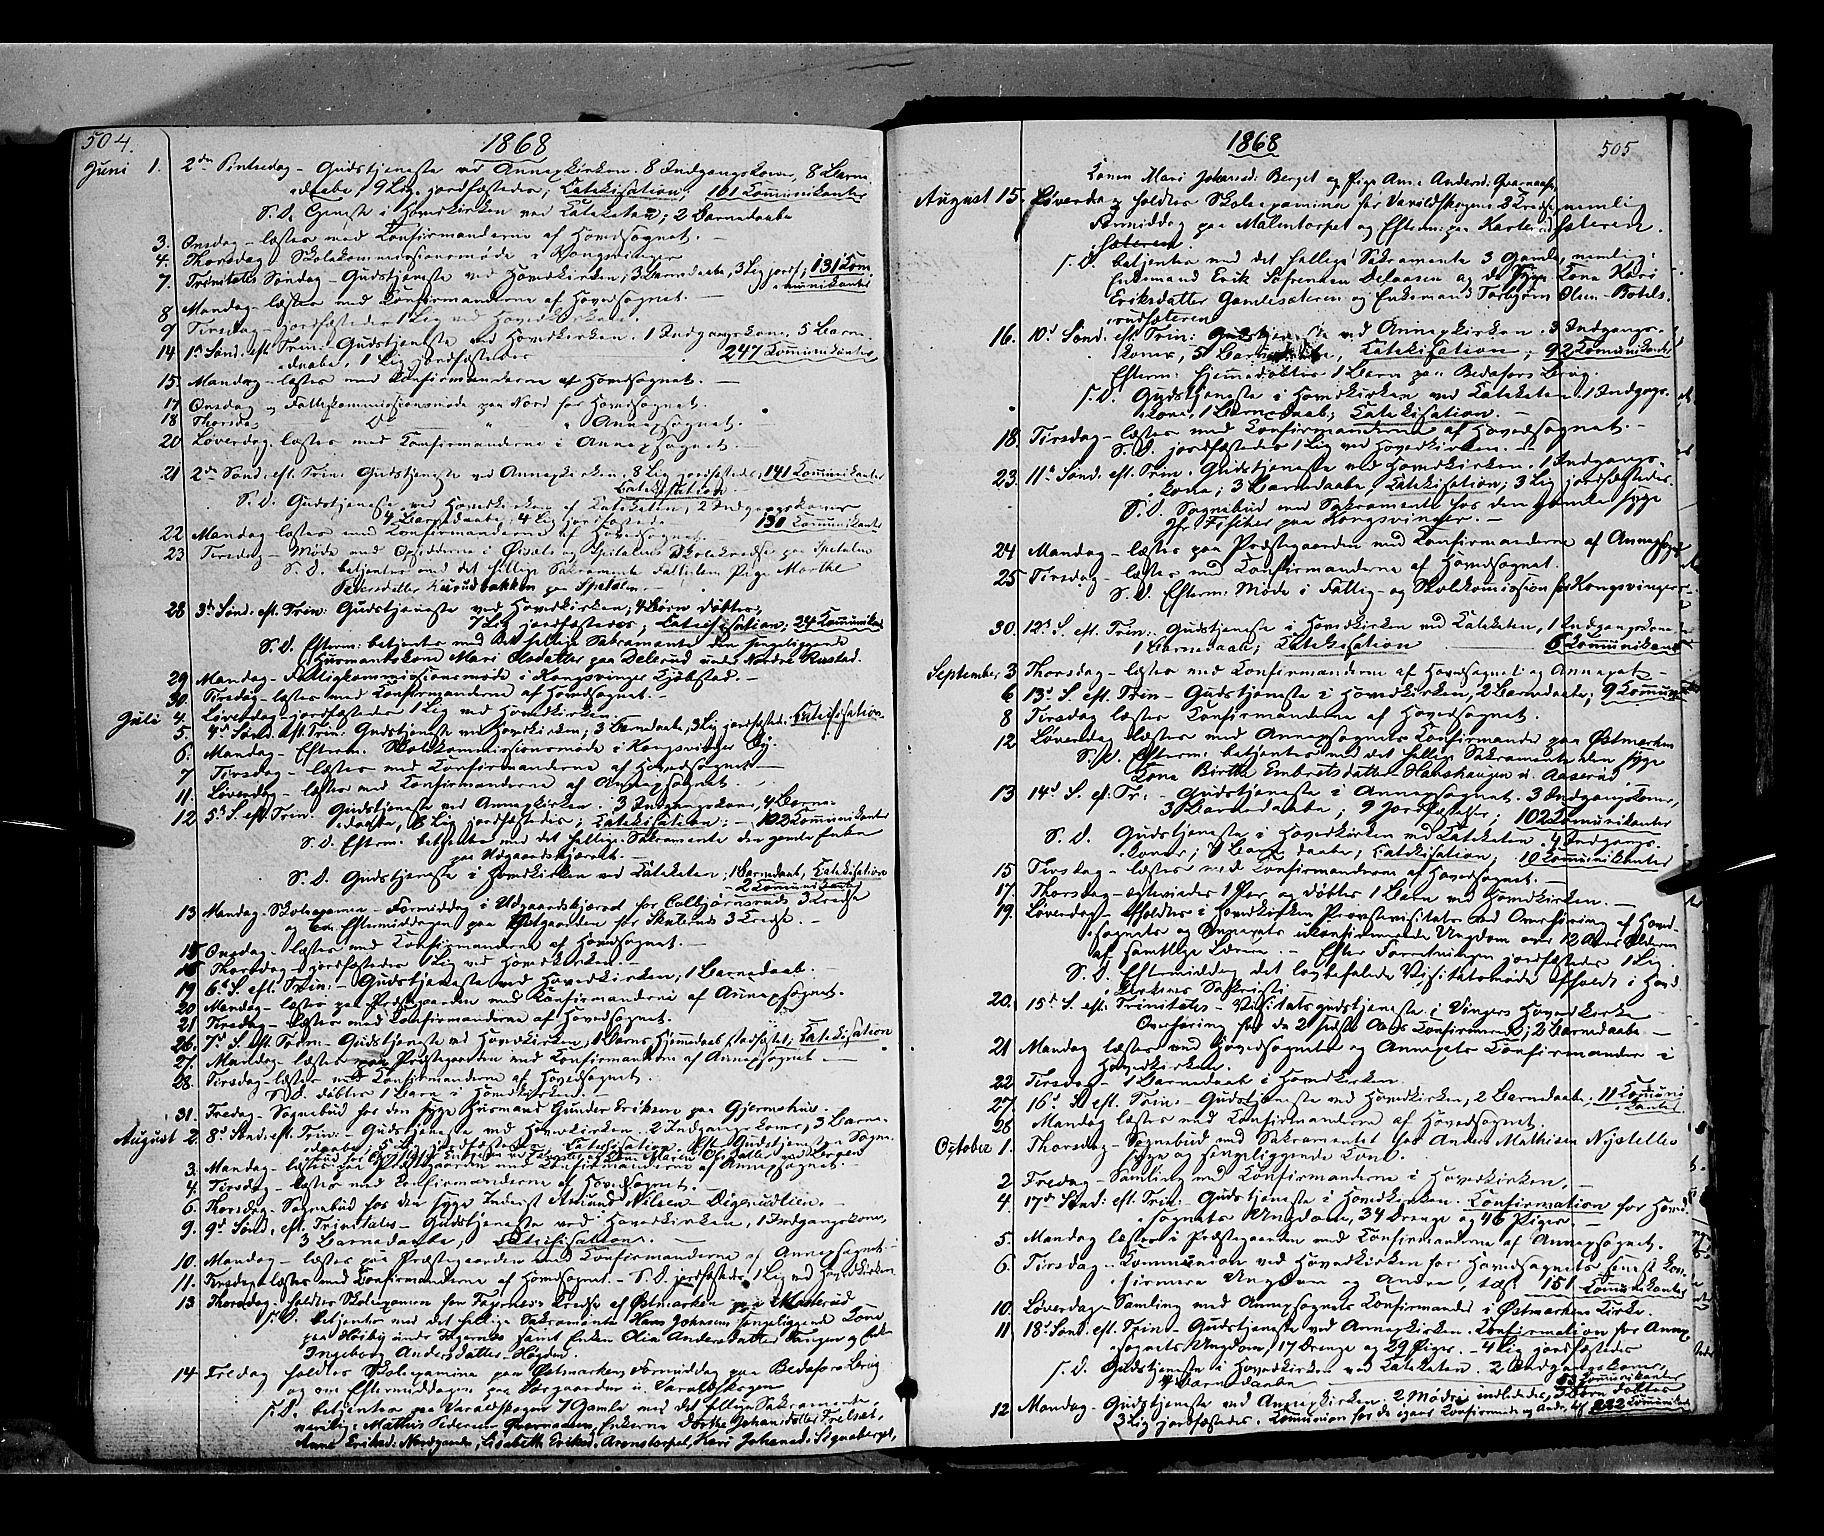 504.
1868
Juni 1. 2den Pintsedag - Gudstjeneste ved Annexkirken. 8 Indgangskoner, 8 Barne-
daabe, 9 Lig jordfæstedes; Catekisation; 161 Communikanter
S. D. Tjeneste i Hovedkirken ved Kateketen; 2 Barnedaabe
3. Onsdag - læstes med Confirmanderne af Hovedsognet. -
4. Thorsdag - Skolekommissionsmøde i Kongsvinger
7. Trinitatis Søndag - Gudstjeneste ved Hovedkirken, 3 Barnedaabe, 3 Lig jordf., 131 Com-
munikanter
8 Mandag - læstes med Confirmanderne af Hovedsognet. -
9 Tirsdag - jordfæstedes 1 Lig ved Hovedkirken.
14 1ste Sønd. eft. Trin. Gudstjeneste ved Annexkirken. 1 Indgangskone, 5 Barne-
daabe, 1 Lig jordfæstedes 247 Communikanter
15. Mandag - læstes med Confirmanderne af Hovedsognet. -
17 Onsdag - Fattigkommissionsmøde paa Nord for Hovedsognet.
18 Thorsdag Do " " Annexsognet. -
20 Løverdag læstes med Confirmanderne i Annexsognet
21 2den Sønd. eft. Trin. Gudstjeneste ved Annexkirken. 8 Lig jordfæstedes, 141 Communikanter
Catekisation
S. D. Gudstjeneste ved Hovedkirken af Kateketen, 2 Indgangskoner
4 Barnedaabe, 4 Lig jordfæstede 130 Communikanter
22 Mandag læstes med Confirmanderne af Hovedsognet. -
23 Tirsdag - Møde med Opsidderne i Spetalens Skolekreds paa Spetalen
S. D. betjentes med det hellige Sakramente Fattiglem Pige Marthe
Pedersdatter paa Spetalen
28 3die Sønd. eft. Trin: Gudstjeneste ved Hovedkirken, 4 Børn døbtes,
7 Lig jordfæstedes; Catechisation; 24 Communikant
S. D. Efterm: betjentes med det hellige Sakramente den sengeliggende
Huusmandskone Mari Olsdatter paa Delerud under Nordre Rustad.
29 Mandag - Fattigkommissionsmøde i Kongsvinger Kjøbstad. -
30. Tirsdag - læstes med Confirmanderne af Hovedsognet. -
Juli 4. Løverdag - jordfæstedes 1 Lig ved Hovedkirken
5. 4de Sønd. eft. Trin. Gudstjeneste ved Hovedkirken; 3 Barnedaabe, 3 Lig jordfæstede. Catechisation
6. Mandag - Efterm. Skolekommissionsmøde i Kongsvinger By.
7 Tirsdag - læstes med Confirmanderne af Hovedsognet -
11. Løverdag - læstes med Confirmanderne af Annexsognet.
12 5te S. eft. Trin. Gudstjeneste ved Annexkirken. 3 Indgangskoner, 4 Barne-
daabe, 6 Lig jordfæstedes; Catekisation; - 102 Communikanter
S. D. Efterm: betjentes med det hellige Sakramente den gamle Enke
paa Udgaardskjernet. -
S. D. Gudstjeneste i Hovedkirken ved Kateketen; 1 Barnedaab, Catekisation
- 2 Communikanter
13 Mandag - Skoleexamen - Formiddag i Udgaardskjernet for Colbjørnsruds 3 Kredse
og om Eftermiddagen paa for Skinteruds 3 Kreds. -
15 Onsdag - læstes med Confirmanderne af Hovedsognet. -
16 Thorsdag - jordfæstedes 1 Lig ved Hovedkirken. -
19 6te S. eft. Trin: - Gudstjeneste ved Hovedkirken; 1 Barnedaab. -
20 Mandag - læstes paa Præstegaarden med Confirmanderne af Annexsognet.
21 Tirsdag - læstes med Confirmanderne af Hovedsognet.
26. 7de S. eft. Trin - Gudstjeneste ved Hovedkirken, 1 Barns Hjemmedaab stadfæstet; Catekisation
27. Mandag - læstes paa Præstegaarden med Confirmanderne af Annexsognet. -
28. Tirsdag - læstes med Confirmanderne af Hovedsognet.
S. D. døbtes 1 Barn i Hovedkirken. -
31. Fredag - Sognebud hos den syge Huusmand Gunder Eriksen paa Gjermshus.
August 2. 8de Sønd. eft. Trin: - Gudstjeneste ved Hovedkirken. 2 Indgangskoner, 3 Barne-
daabe, 5 Lig jordfæstedes. Catechisation. Eft. Gudstjenesten Sogne-
3. Mandag - læstes paa Præstegaarden med Confirmanderne af Annexsognet. -
4. Tirsdag - læstes med Confirmanderne af Hovedsognet. -
6. Thorsdag - Sognebud hos den syge Inderst Amund Nilsen - Digerudlien. -
9. 9de Sønd. eft. Trinitatis - Gudstjeneste ved Hovedkirken, 1 Indgangskone,
3 Barnedaabe; Catechisation. -
10. Mandag - læstes paa Præstegaarden med Confirmanderne af Annexsognet -
11. Tirsdag læstes med Confirmanderne af Hovedsognet. - S. D. jordfæstedes 1 Lig ved Hovedkirken
13 Thorsdag - holdtes Skoleexamen for Fagernæs Kreds af Østmarken paa Masterud
S. D. betjentes med det hellige Sakramente Hans Johnsens sengeliggende Kone
paa Heiby under Fagernæs samt Enken Olia Andersdatter Tangen og Enke
Ingeborg Andersdatter - Høgden.
14 Fredag holdtes Skoleexamina paa Østmarkens Formiddag paa Bedafors Brug
og om Eftermiddagen paa Søregaarden i Varaldskogen
S. D. betjentes paa Varaldskogen 7 Gamle med det hellige Sakramente,
nemlig: Mathis Pedersen Qvarnaasen, Enkerne Dorthe Johansdatter Frælsæt,
Anne Eriksd. Nordgaarden, Lisabeth Eriksd. Aronstorpet, Kari Johansd. Signeberget,
1868
505
Konen Mari Johansd. Berget og Pige Ane Andersd. Qvarnaasen,
August 15. Løverdag holdtes Skoleexamina for Varaldskogens 2 Kredse nemlig
Formiddag paa Malentorpet og Efterm: paa
sæteren.
S. D. betjentes med det hellige Sakramente 3 Gamle, nemlig:
Enkemand Erik Søfrensen Delaasen og d. syge Kone Kari
Eriksdatter Gamlesæteren og Enkemand Torbjørn Olsen - Botels-
rudsæteren
16. 10de Sønd. eft. Trin: Gudstjeneste ved Annexkirken. 3 Indgangs-
koner, 5 Barnedaabe, Catekisation; 92 Communikanter
Efterm: hjemmedøbtes 1 Barn paa Bedafors Brug.
S. D. Gudstjeneste i Hovedkirken ved Kateketen. 1 Indgangs-
kone, 1 Barnedaab; Catekisation. -
18. Tirsdag - læstes med Confirmanderne af Hovedsognet. -
S. D. jordfæstedes 1 Lig ved Hovedkirken. -
23. 11te Sønd. eft. Trin. Gudstjeneste ved Hovedkirken. 1 Indgangs-
kone; 3 Barnedaabe, Catekisation; 3 Lig jordfæstedes.
S. D. Sognebud med Sakramente hos den gamle syge
Hr. Fischer paa Kongsvinger. -
24 Mandag - læstes paa Præstegaarden med Confirmanderne af Annexsognet
25 Tirsdag - læstes med Confirmanderne af Hovedsognet.
S. D. Efterm: Møde i Fattig- og Skolekommission for Kongsvinger. -
30. 12te S. eft. Trin. Gudstjeneste i Hovedkirken ved Kateketen, 1 Indgangskone
1 Barnedaab; Catekisation 6 Communikanter
September 3 Thorsdag - læstes med Confirmanderne af Hovedsognet og Annexet -
6 13de S. eft. Trin - Gudstjeneste i Hovedkirken, 2 Barnedaabe; 9 Communik
8 Tirsdag læstes Confirmanderne af Hovedsognet.
12 Løverdag læstes med Annexsognets Confirmander paa Østmarken
S. D. Efterm. betjentes med det hellige Sakramente den syge
Kone Birthe Embretsdatter Hanshaugen u. Aaserud
13 14de S. ef. Tr: - Gudstjeneste i Annexsognet. 3 Indgangskoner,
3 Barnedaabe; 9 Jordfæstelser; 102 Communikanter
S. D. Gudstjeneste i Hovedkirken ved Kateketen. 4 Indgangs-
koner; Barnedaabe; Catekisation; 10 Communikanter
15 Tirsdag - læstes med Confirmanderne af Hovedsognet. -
17. Thorsdag - ægteviedes 1 Par og døbtes 1 Barn ved Hovedkirken. -
19. Løverdag - Afholdtes i Hovedkirken Provstevisitats med Overhøring af Hoved-
sognets og Annexets ukonfirmerede Ungdom over 12 Aars Alderen
af samtlige Lærere. - Efter Forretningen jordfæstedes 1 Lig. -
S. D. Eftermiddag det lovbefalede Visitatsmøde afholdt i Hoved-
kirkens Sakristi.
20. 15de S. eft: Trinitatis - Visitatsgudstjeneste i Vingers Hovedkirke
Overhøring for de 2 sidste Aars Confirmerede; 2 Barnedaabe. -
21 Mandag læstes med Hovedsognets og Annexets Confirmander i
Hovedkirken.
22 Tirsdag - 1 Barnedaab i Hovedkirken.
27 16de S. eft. Trin. - Gudstjeneste ved Hovedkirken, 2 Barnedaabe; 11 Communi-
kanter.
28 Mandag læstes med Confirmanderne af Hovedsognet.
October 1. Thorsdag - Sognebud med Sakramentet hos Anders Mathisen Nystelles
syge og sengeliggende Kone.
2 Fredag - Samling med Confirmanderne i Hovedkirken. -
4. 17de Sønd: eft. Trin: Gudstjeneste i Hovedkirken. Confirmation for Hoved-
sognets Ungdom, 34 Drenge og 46 Piger -
5. Mandag læstes i Præstegaarden med Confirmanderne af Annexsognet.
6. Tirsdag - Communion ved Hovedkirken for Hovedsognets senest Con-
firmerede Ungdom og Andre, tils. 151 Communikanter
10. Løverdag - Samling med Annexsognets Confirmander i Østmarkens Kirke.
11 18de Sønd. eft. Trin - Gudstjeneste ved Annexkirken. Confirmation for Annex-
sognets Ungdom, 17 Drenge og 29 Piger. - 4 Lig jordfæstedes
S. D. Gudstjeneste i Hovedkirken ved Kateketen. 2 Indgangskoner,
4 Barnedaabe Communikanter
12 Mandag - Gudstjeneste ved Annexkirken. 2 Mødre indlededes, Børn døbtes
3 Lig jordfæstedes. Communion for de igaar Confirmerede og Andre, tils. 222 Communikanter